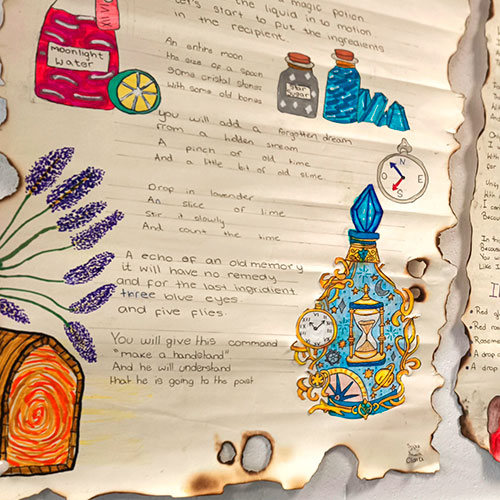 magic potion
Let's start to put the ingredients
the liquid in to motion
in the recipient.
Moonlight
water
An entire moon
the size of a spoon
some cristal stones
With some old bones
Star
Sugar
you will add a forgotten dream
from a hidden stream
A pinch of old time
And a little bit of old slime
N
E
S
O
Drop in lavender
An slice of lime
Stir it slowly
And count the time
A echo of an old memory
it will have no remedy
and for the last ingridient
three blue eyes
and five flies.
You will give this command
"make a handstand"
And he will understand
that he is going to the past
I can
Because
In the
Because
You w
Like
Red
Red
Rosema
A drop
A drop